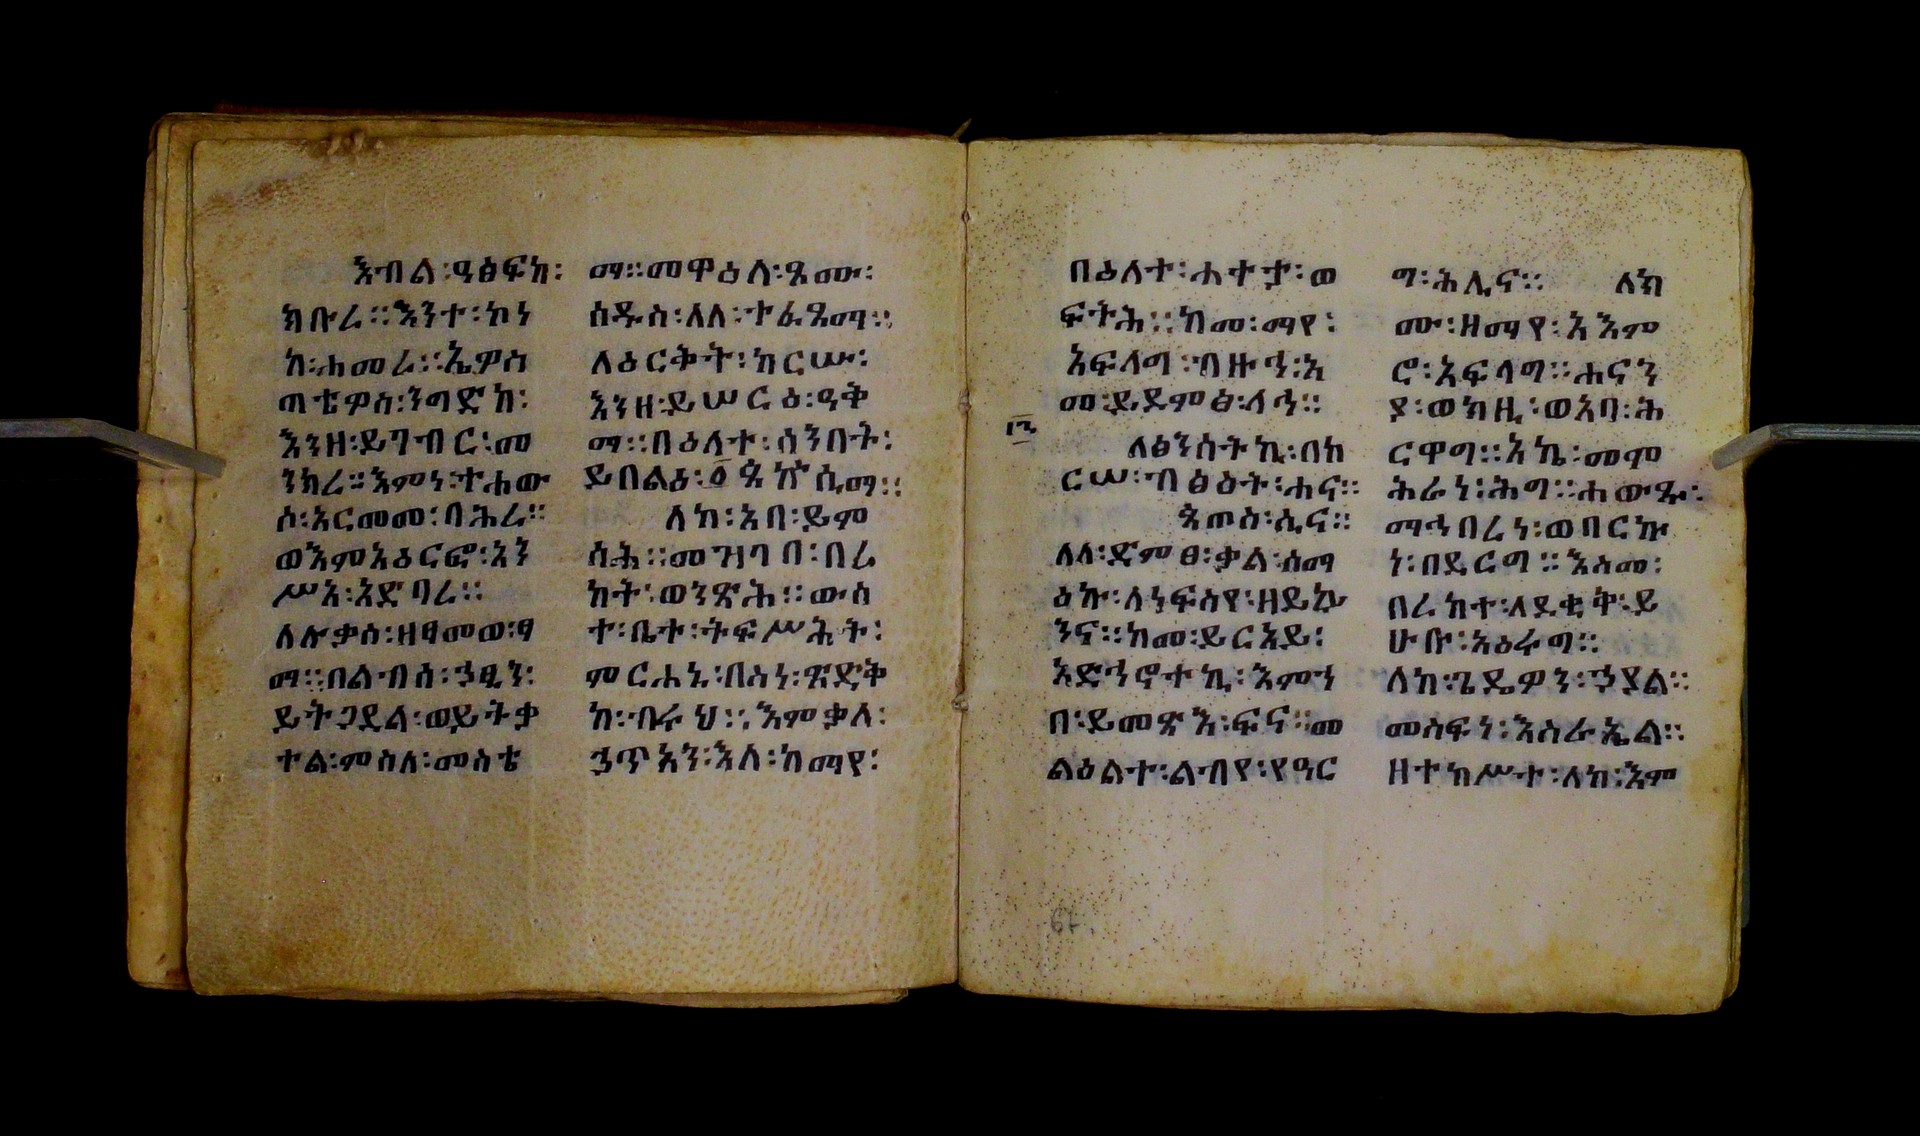 እብል፡ዓፅፍከ፡
ክቡረ፡፡እንተ፡ኮነ
ከ፡ሐመራ፡፡ኤዎስ
ጣቴዎስ፡ንግድከ፡
እንዘ፡ይገብር፡መ
ንክረ፡፡እምነ፡ተሐው
ሶ፡አርመመ፡ባሕረ፡፡
ወእምአዕርፎ፡አን
ሥአ፡አድባረ፡፡
ለሉቃስ፡ዘፃመወ፡ፃ
ማ፡፡በልብሰ፡ኃፂን፡
ይትጋደል፡ወይትቃ
ተል፡ምስለ፡መስቴ
ማ፡፡መዋዕለ፡ጼሙ፡
ሰዱስ፡ለለ፡ተፈጸማ፡፡
ለዕርቅት፡ከርሡ፡
እንዘ፡ይሠርዕ፡ዓቅ
ማ፡፡በዕለተ፡ሰንበት፡
ይበልዕ፡
ለከ፡አበ፡ይም
ሳሕ፡፡መዝገበ፡በረ
ከት፡ወንጽሕ፡፡ውስ
ተ፡ቤተ፡ትፍሥሕት፡
ምርሐኒ፡በስነ፡ጽድቅ
ከ፡ብሩህ፡፡እምቃለ፡
ኃጥአን፡እለ፡ከማየ፡
በዕለተ፡ሐተታ፡ወ
ፍትሕ፡፡ከመ፡ማየ፡
አፍላግ፡ብዙኅ፡አ
መ፡ይደምፅ፡ላኅ፡፡
ለፅንሰትኪ፡በከ
ርሠ፡ብፅዕት፡ሐና፡፡
ጳጦስ፡ሲና፡፡
ለለ፡ድምፀ፡ቃል፡ሰማ
ዕኩ፡ለነፍስየ፡ዘይኴ
ንና፡፡ከመ፡ይርአይ፡
አድኅኖተኪ፡እምነ
በ፡ይመጽእ፡ፍና፡፡መ
ልዕልተ፡ልብየ፡የዓር
ግ፡ሕሊና፡፡ ለክ
ሙ፡ዘማየ፡አእም
ሮ፡አፍላግ፡፡ሐናን
ያ፡ወክዚ፡ወአባ፡ሕ
ርዋግ፡፡አኬ፡መሞ
ሕራነ፡ሕግ፡፡ሐውጹ፡
ማኅበረነ፡ወባርኩ
ነ፡በደርግ፡፡እስመ፡
በረከተ፡ለደቂቅ፡ይ
ሁቡ፡አዕሩግ፡፡
ለከ፡ጌዴዎን፡ኃያል፡፡
መስፍነ፡እስራኤል፡፡
ዘተከሥተ፡ለከ፡እም